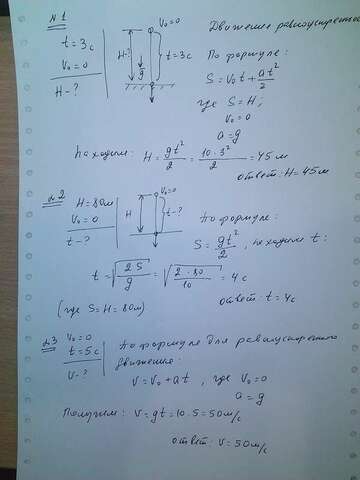 №1
t = 3c
V₀ = 0
H - ?
H - ?
g
V₀ = 0
t = 3c
Движение равноускоренное
По формуле:
S = V₀t + at²/2
где S = H;
V₀ = 0
a = g
Находим: H = gt²/2 = 10·3²/2 = 45м
ответ: H = 45м
№2
H = 80м
V₀ = 0
t - ?
H
V₀ = 0
t - ?
По формуле:
S = gt²/2, находим t:
t = √(2S/g) = √(2·80/10) = 4с
(где S = H = 80м)
ответ: t = 4с
№3
V₀ = 0
t = 5с
V - ?
По формуле для равноускоренного
движения:
V = V₀ + at, где V₀ = 0
a = g
Получим: V = gt = 10·5 = 50м/с
ответ: V = 50м/с